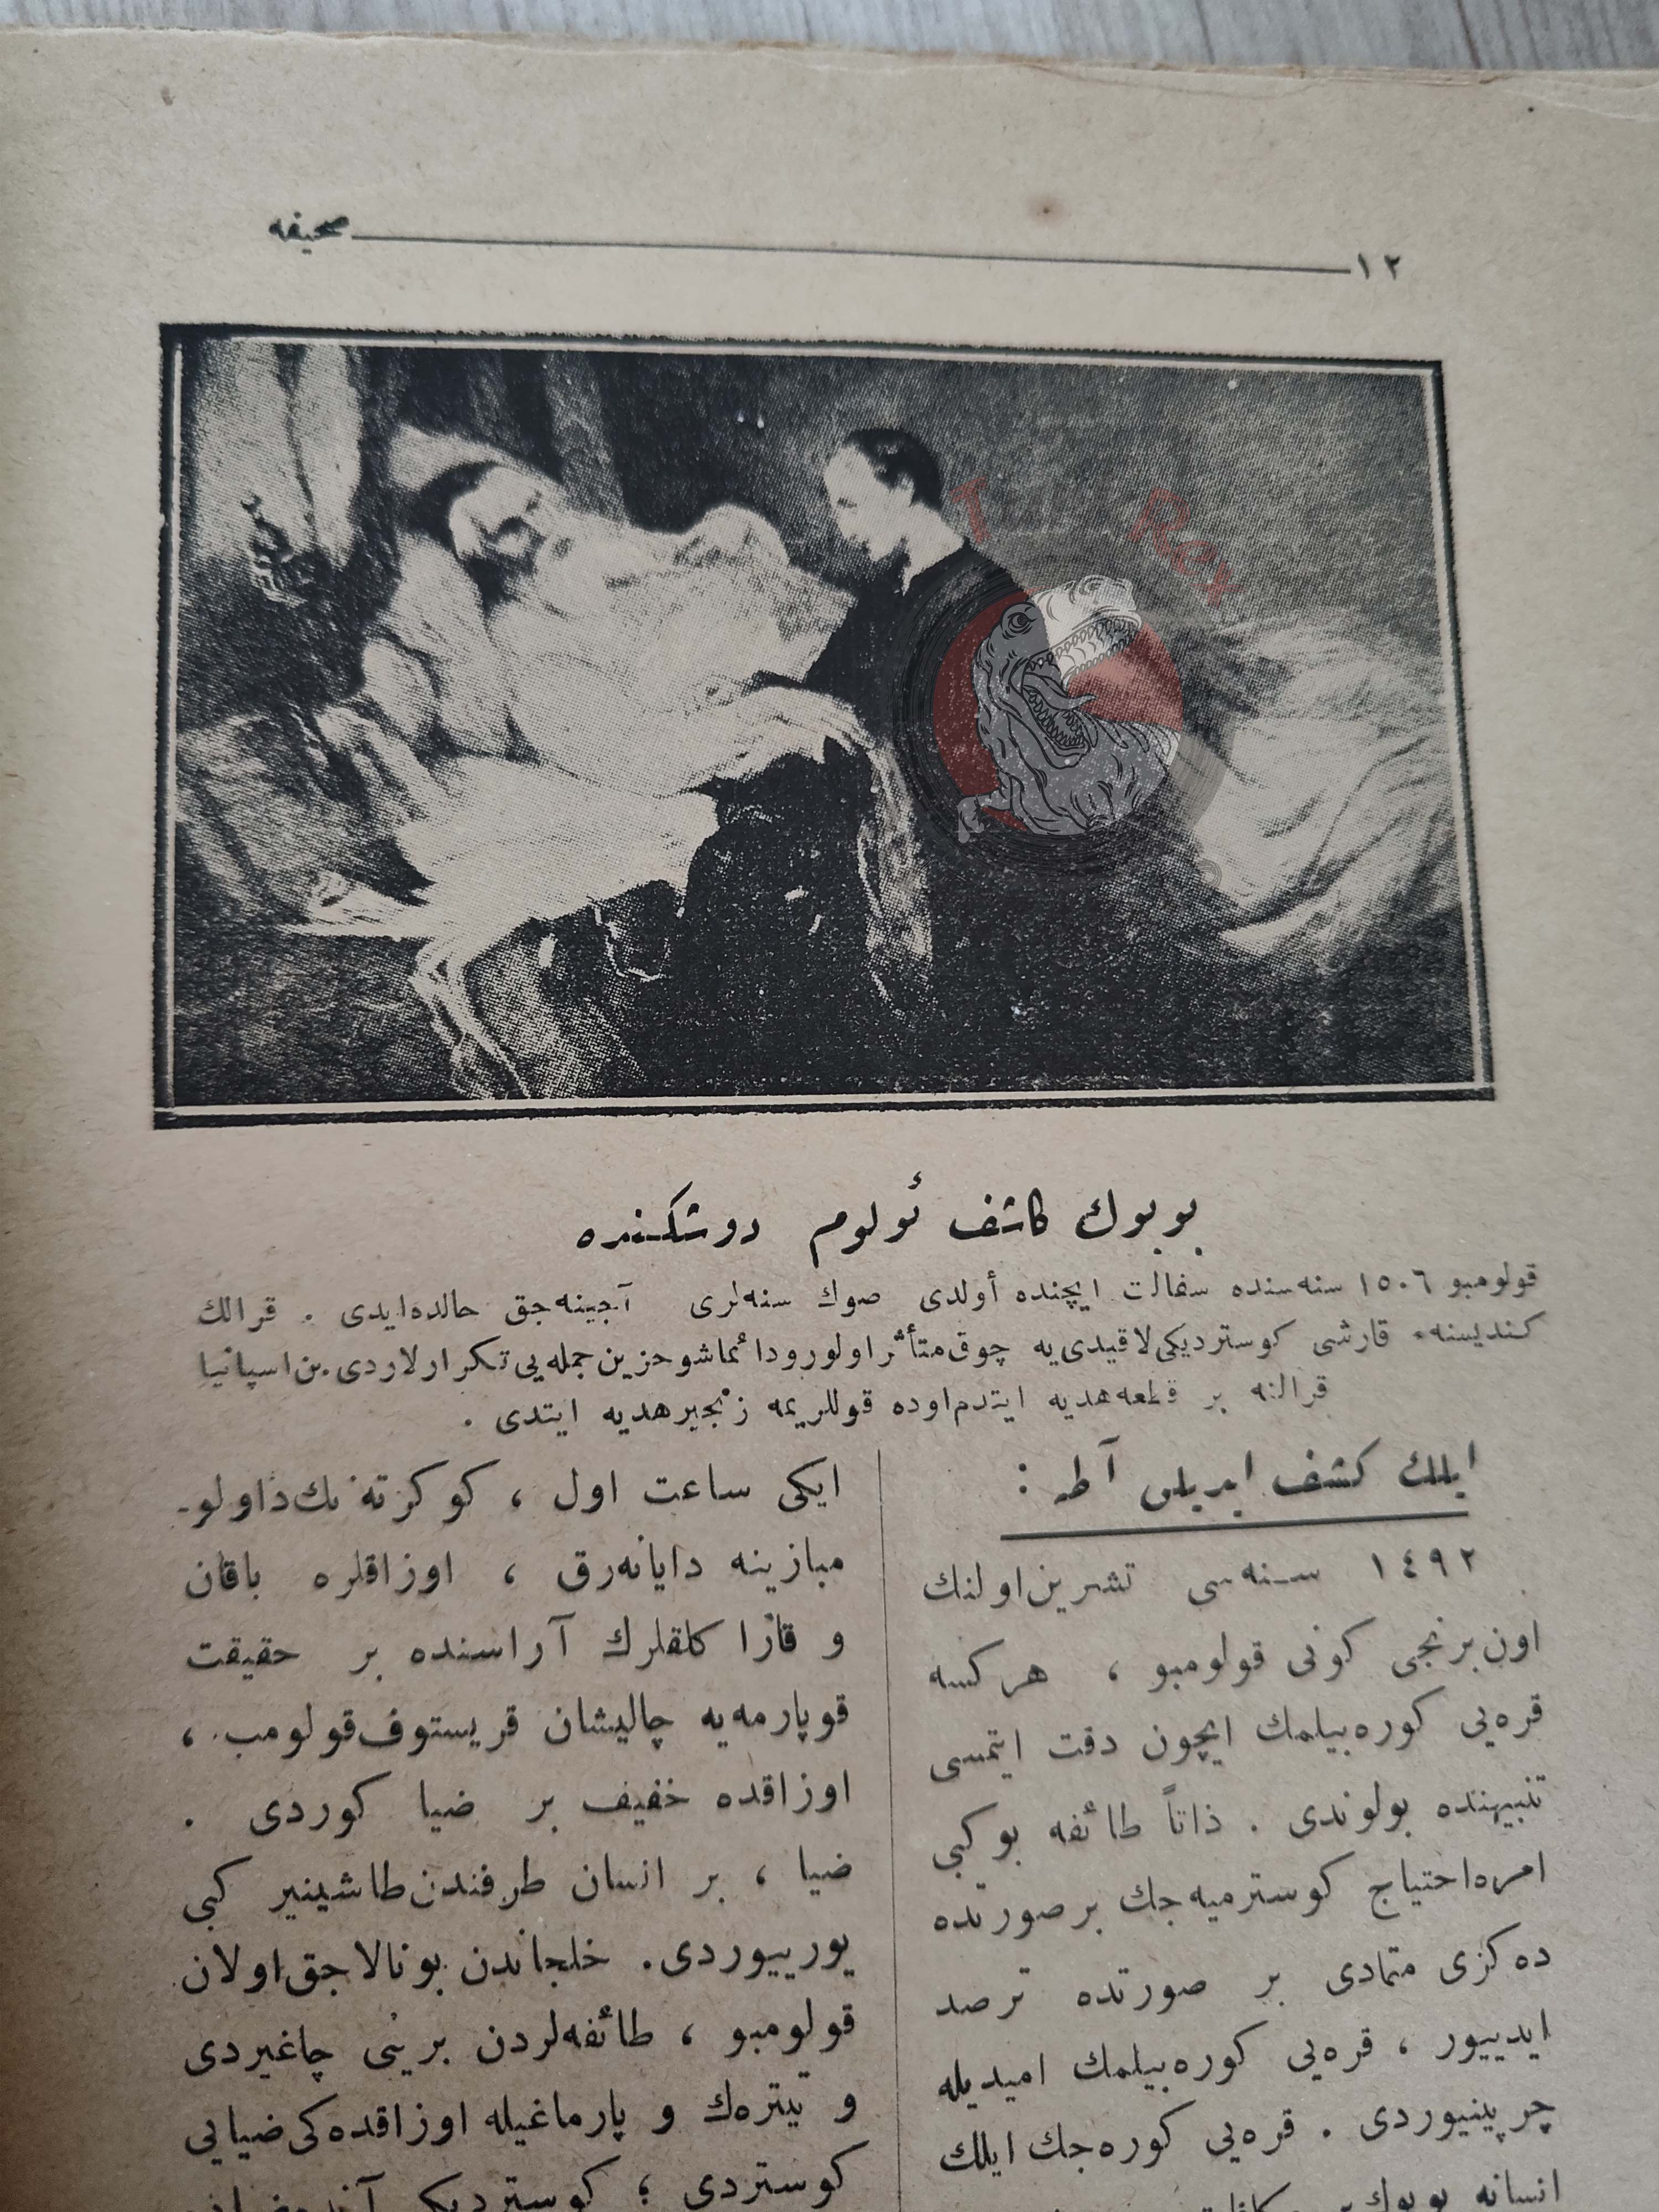 ١٢
صحیفه
T Rex
بویوك كاشف ئولوم دوشكنده
قولومبو ١٥٠٦ سنه‌سنده سفالت ایچنده أولدی صوك سنه‌لری آجینه‌جق حالده‌ایدی . قرالك
كندیسنه قارشی كوستردیكی‌لاقیدی‌یه چوق‌متأثر اولورو دائماشو حزین جمله‌یی تكرارلاردی . بن‌اسپانیا
قرالنه بر قطعه‌هدیه ایتدم اوده قوللریمه زنجیر هدیه ایتدی .
ایلك كشف ایدیلن آطه :
١٤٩٢ سنه‌سی تشرین‌اولنك
اون‌برنجی كونی قولومبو ، هركسه
قره‌یی كوره‌بیلمك ایچون دقت ایتمسی
تنبیهنده بولوندی . ذاتاً طائفه بوكبی
امره‌احتیاج كوسترمیه‌جك برصورتده
ده‌كزی متمادی بر صورتده ترصد
ایدییور ، قره‌یی كوره‌بیلمك امیدیله
چرپینیوردی . قره‌یی كوره‌جك ایلك
انسانه بویوك
ایكی ساعت اول ، كوكرته‌نك‌داولو-
مبازینه دایانه‌رق ، اوزاقلره باقان
و قاراكلقلرك آراسنده بر حقیقت
قوپارمه‌یه چالیشان قریستوف‌قولومب ،
اوزاقده خفیف بر ضیا كوردی .
ضیا ، بر انسان طرفندن‌طاشینیر كبی
یورییوردی . خلجاندن بونالاجق‌اولان
قولومبو ، طائفه‌لردن برینی چاغیردی
و تیتره‌ك و پارماغیله اوزاقده‌كی‌ضیایی
كوستردی ؛ كوستردیكی